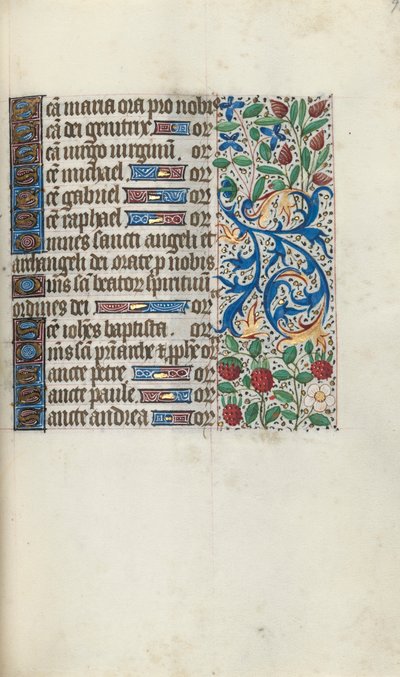 Sc̄a maria ora pro nobis
Sc̄a dei genitrix or
Sc̄a uirgo uirginū. or
Sc̄e michael or
Sc̄e gabriel or
Sc̄e raphael or
Omnes sancti angeli et
archangeli dei orate p nobis
Om̄s sc̄i beatoꝝ spirituū
ordines dei or
Sc̄e ioh̄es baptista or
Om̄s sc̄i pr̄iarche et ꝓph̄e or
Sancte petre or
Sancte paule or
Sancte andrea or